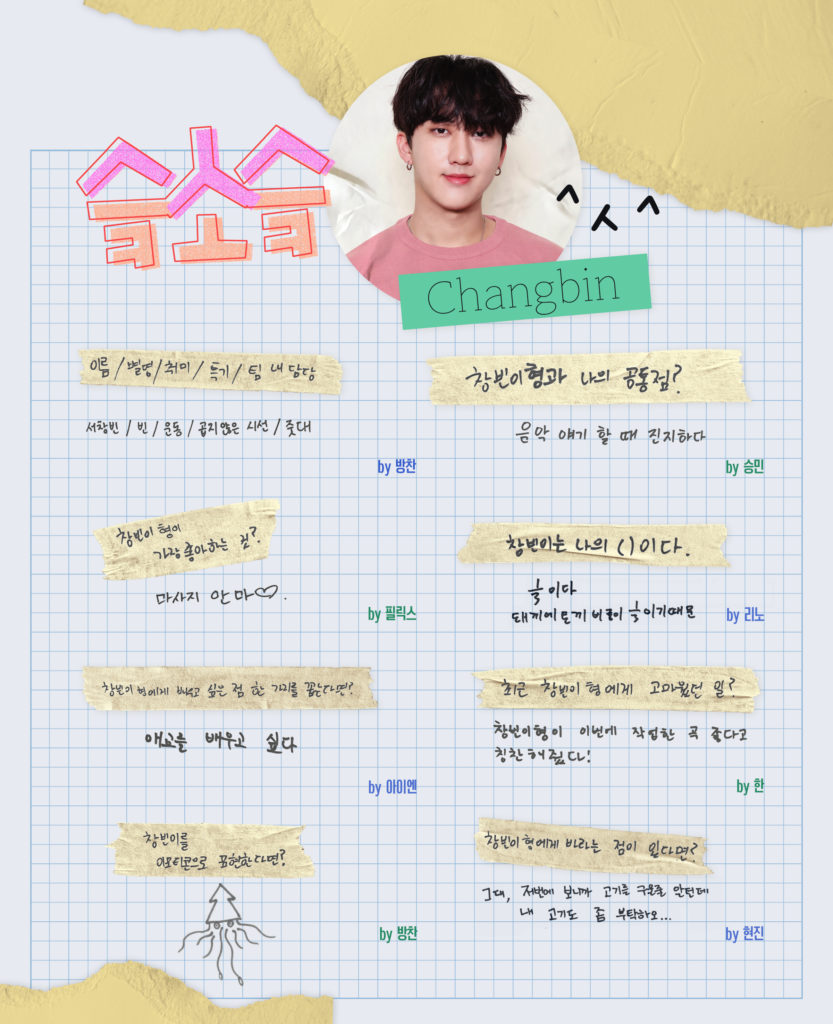 슥소슥
^ ㅅ ^
Changbin
이름 / 별명 / 취미 / 특기 / 팀 내 담당
서창빈 / 빈 / 운동 / 곱지않은 시선 / 줏대
by 방찬
창빈이형과 나의 공통점?
음악 얘기 할 때 진지하다
by 승민
창빈이 형이
가장 좋아하는 것?
마사지 안마♡.
by 필릭스
창빈이는 나의 ( ) 이다.
⅓이다
돼끼에 토끼 비율이 ⅓이기때문
by 리노
창빈이 형에게 배우고 싶은 점 한 가지를 꼽는다면?
애교를 배우고 싶다
by 아이엔
최근 창빈이 형에게 고마웠던 일?
창빈이형이 이번에 작업한 곡 좋다고
칭찬해줬다!
by 한
창빈이를
이모티콘으로 표현한다면?
by 방찬
창빈이 형에게 바라는 점이 있다면?
그대, 저번에 보니까 고기를 구울줄 안던데
내 고기도 좀 부탁하오...
by 현진